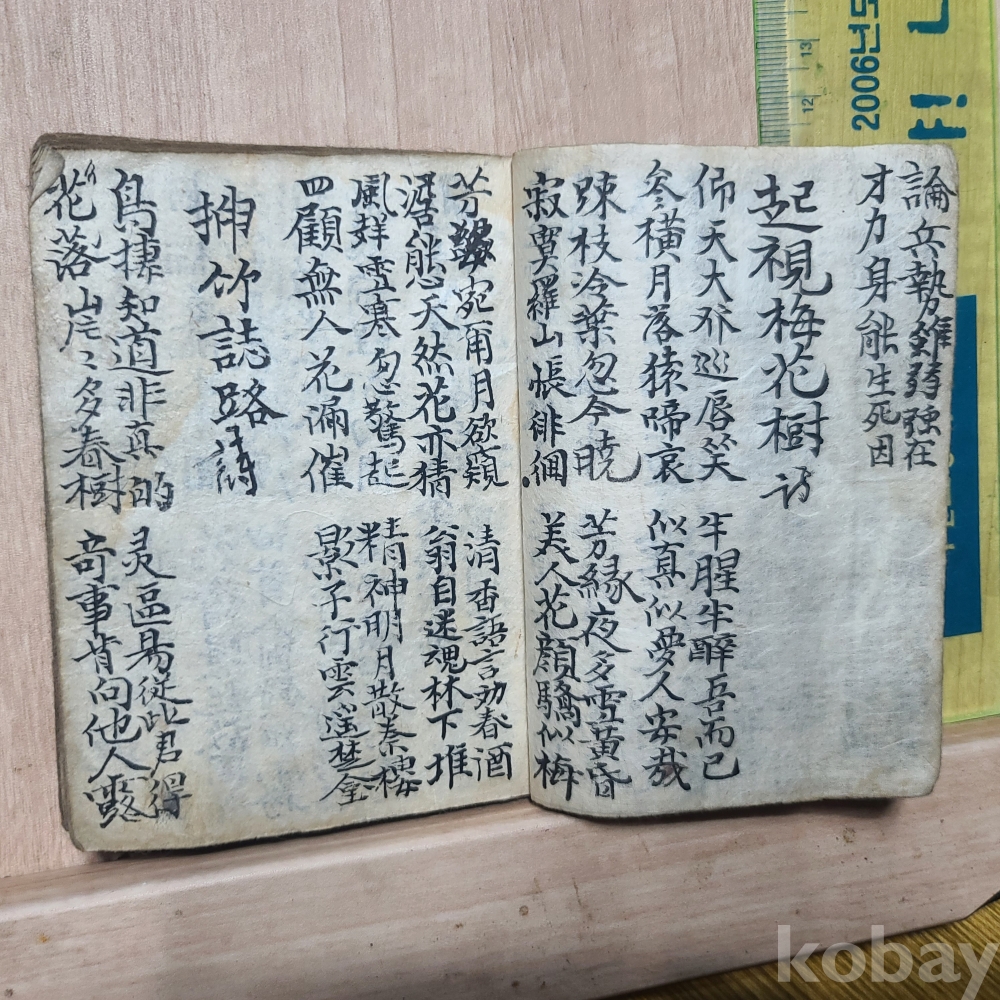 論兵勢雖弱強在
才力身能生死因
起視梅花樹詩
仰天大 巡唇笑 半腥半醉吾而已
參橫月落猿啼哀 似真似夢人安哉
疎枝冷葉忽今曉 芳緣夜多雪黃昏
寂寞羅山悵徘徊 美人花顏驕似梅
芳 宛爾月欲窺 清香語言劝春酒
能 天然花亦猜 翁自迷魂林下堆
風 雪寒忽驚起 精神明月散秦樓
四顧無人花漏催 影子行雲遥楚
挿竹誌路詩
鳥捿知道非真的 灵區易從此君得
花落山 多春樹 奇事肯向他人露
2006년도
13
12
kobay